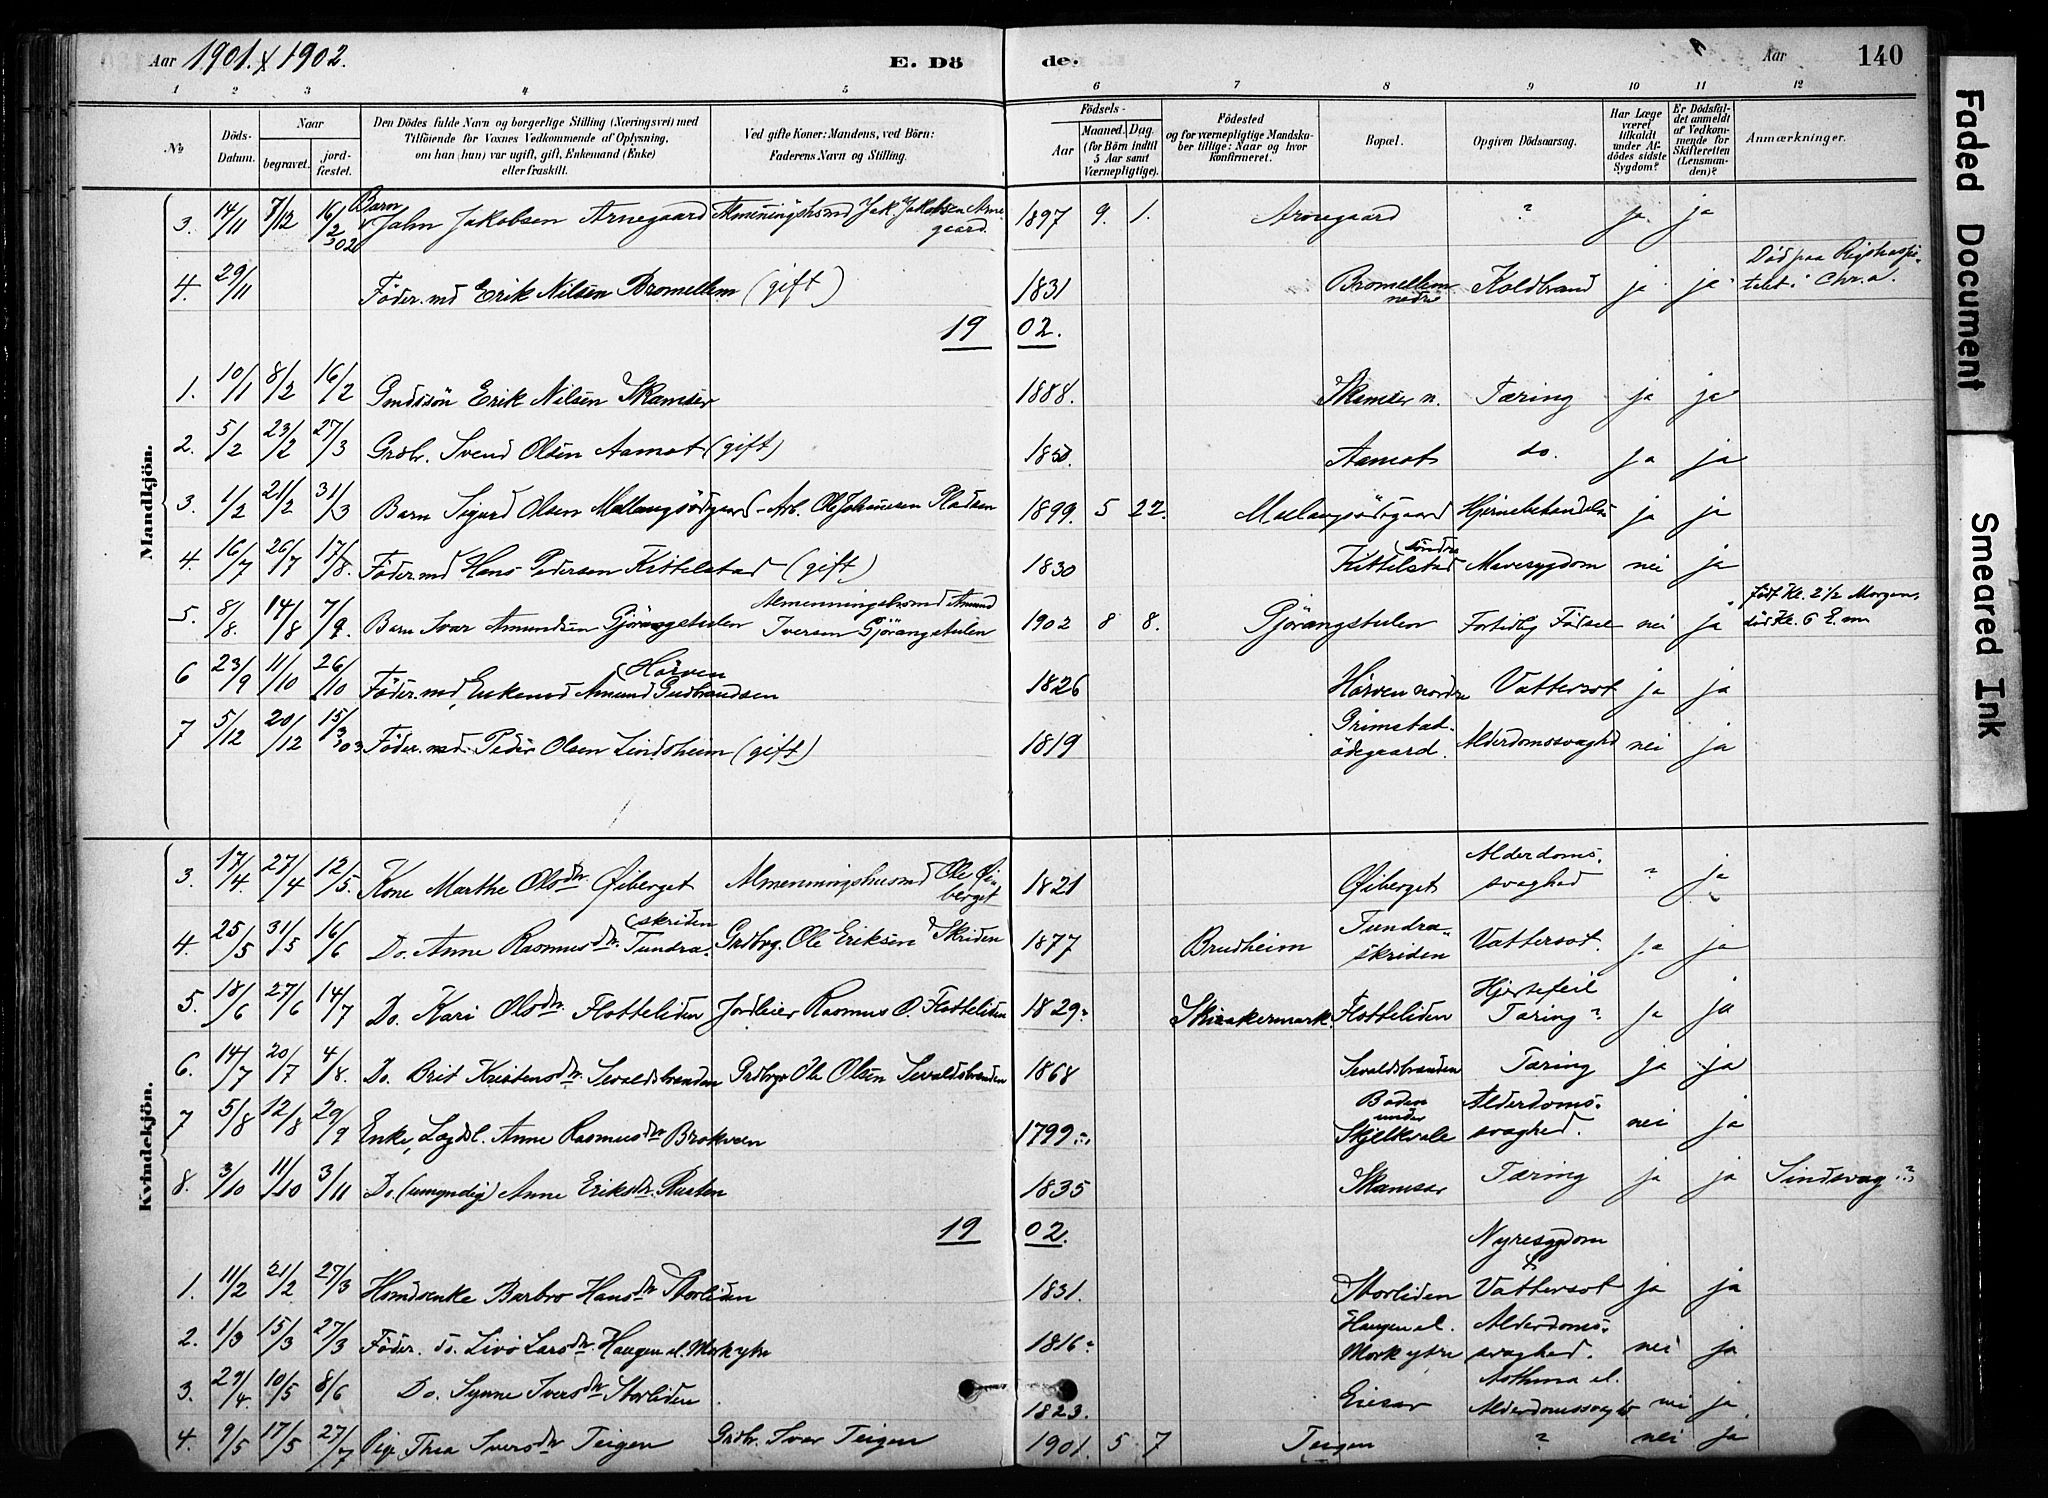 Aar 1901 & 1902.
E. Dö de.
Aar
140
1 2 3 4 5 6 7 8 9 10 11 12
No
Döds-Datum.
Naar
begravet.
jordfæstet.
Den Dödes fulde Navn og borgerlige Stilling (Næringsvei) med
Tilföiende for Voxnes Vedkommende af Oplysning,
om han (hun) var ugift, gift, Enkemand (Enke)
eller fraskilt.
Ved gifte Koner: Mandens, ved Börn:
Faderens Navn og Stilling.
Födsels-
Aar
Maaned. Dag.
(for Börn indtil
5 Aar samt
Værnepligtige).
Födested
og for værnepligtige Mandskaber tillige: Naar og hvor
konfirmeret.
Bopæl.
Opgiven Dödsaarsag.
Har Læge
været
tilkaldt
under Afdödes sidste
Sygdom?
Er Dödsfaldet anmeldt
af Vedkommende for
Skifteretten
(Lensmanden)?
Anmærkninger.
Mandkjön.
3. 14/11 7/12 16/2 302 Barn John Jakobsen Arnegaard Almeningshsmd Jak. Jakobsen Arnegaard. 1897 9. 1. Arnegaard ? ja ja
4. 29/11 Föder.md Erik Nilsen Bromellem (gift) 1831 Bromellem nedre Koldbrand ja ja Död paa Rigshospitalet i Chr.a.
19 02.
1. 10/1 8/2 16/2 Gmdssön Erik Nilsen Skamsar 1888. Skamsar n. Tæring ja ja
2. 5/2 23/2 27/3 Grdbr. Svend Olsen Aamot (gift) 1850. Aamot do. ja ja
3. 1/2 21/2 31/3 Barn Sigurd Olsen Mælumsödegaard Arb. Ole Johannesen Pladsen 1899. 5 22. Hjernebetændelse ja ja
4. 16/7 26/7 17/8. Föder.md Hans Pedersen Kittelstad (gift) 1830 Kittelstad söndre Mavesygdom nei ja
5. 8/8. 14/8 7/9. Barn Ivar Amundsen Gjörangstulen Almenningshsmd Amund Iversen Gjörangstulen 1902 8 8. Gjörangstulen Fortidlig Födsel nei ja födt Kl. 2 1/2 Morgen, död Kl. 6 E.m
6 23/9 11/10 26/10 Föder.md, Enkemd Amund Gudbrandsen Horven 1826 Horven nordre Vattersot ja ja
7 5/12 20/12 15/3 303 Föder.md. Peder Olsen Lindsheim (gift) 1819 Grimstadödegaard. Alderdomssvaghd nei ja
Kvindekjön.
3. 17/4. 27/4 12/5. Kone Marthe Olsdtr. Øiberget Almenningshusmd Ole Øiberget 1821 Øiberget Alderdomssvaghed " ja
4. 25/5 31/5 16/6 Do. Anne Rasmusdtr. Tundraskriden Grdbrg. Ole Eriksen Skriden 1877 Brudheim Tundraskriden Vattersot. Ja ja
5. 18/6 27/6 14/7 Do. Kari Olsdtr. Flotteliden Jordleier Rasmus O. Flotteliden 1829. Skiaakermark. Flotteliden Hjertefeil Tæring? Ja ja
6. 14/7 20/7 4/8. Do. Brit Kristensdtr. Sevaldsbranden Grdbrgr Ole Olsen Sevaldsbranden 1868 Sevaldsbranden Tæring ja ja
7 5/8 12/8 29/9 Enke, Lægdsl. Anne Rasmusdtr Brokveen 1799. Baden under Skjelkvale Alderdomssvaghed. nei ja
8. 3/10 11/10 3/11 Do. (umyndig) Anne Eriksdtr. Rusten 1835 Skamsar Tæring ja ja Sindsvag?
19 02.
1. 11/2 21/2 27/3 Hsmdsenke Barbro Hansdtr Storliden 1831. Storliden Nyresygdom & Vattersot ja ja
2. 1/3 15/3 27/3 Föder. do. Livö Larsdtr. Haugen el. Mork ytre 1816. Haugen el. Mork ytre Alderdomssvaghed. nei ja
3. 29/4. 10/5 8/6 Do. Synne Iversdtr Storliden 1823. Eiesar Asthma el. Alderdomssvaghd nei ja
4. 9/5 17/5 27/7 Pige Thea Iversdtr Teigen Grdbr. Ivar Teigen 1901. 5 7 Teigen ? nei ja
Faded Document
Smeared Ink